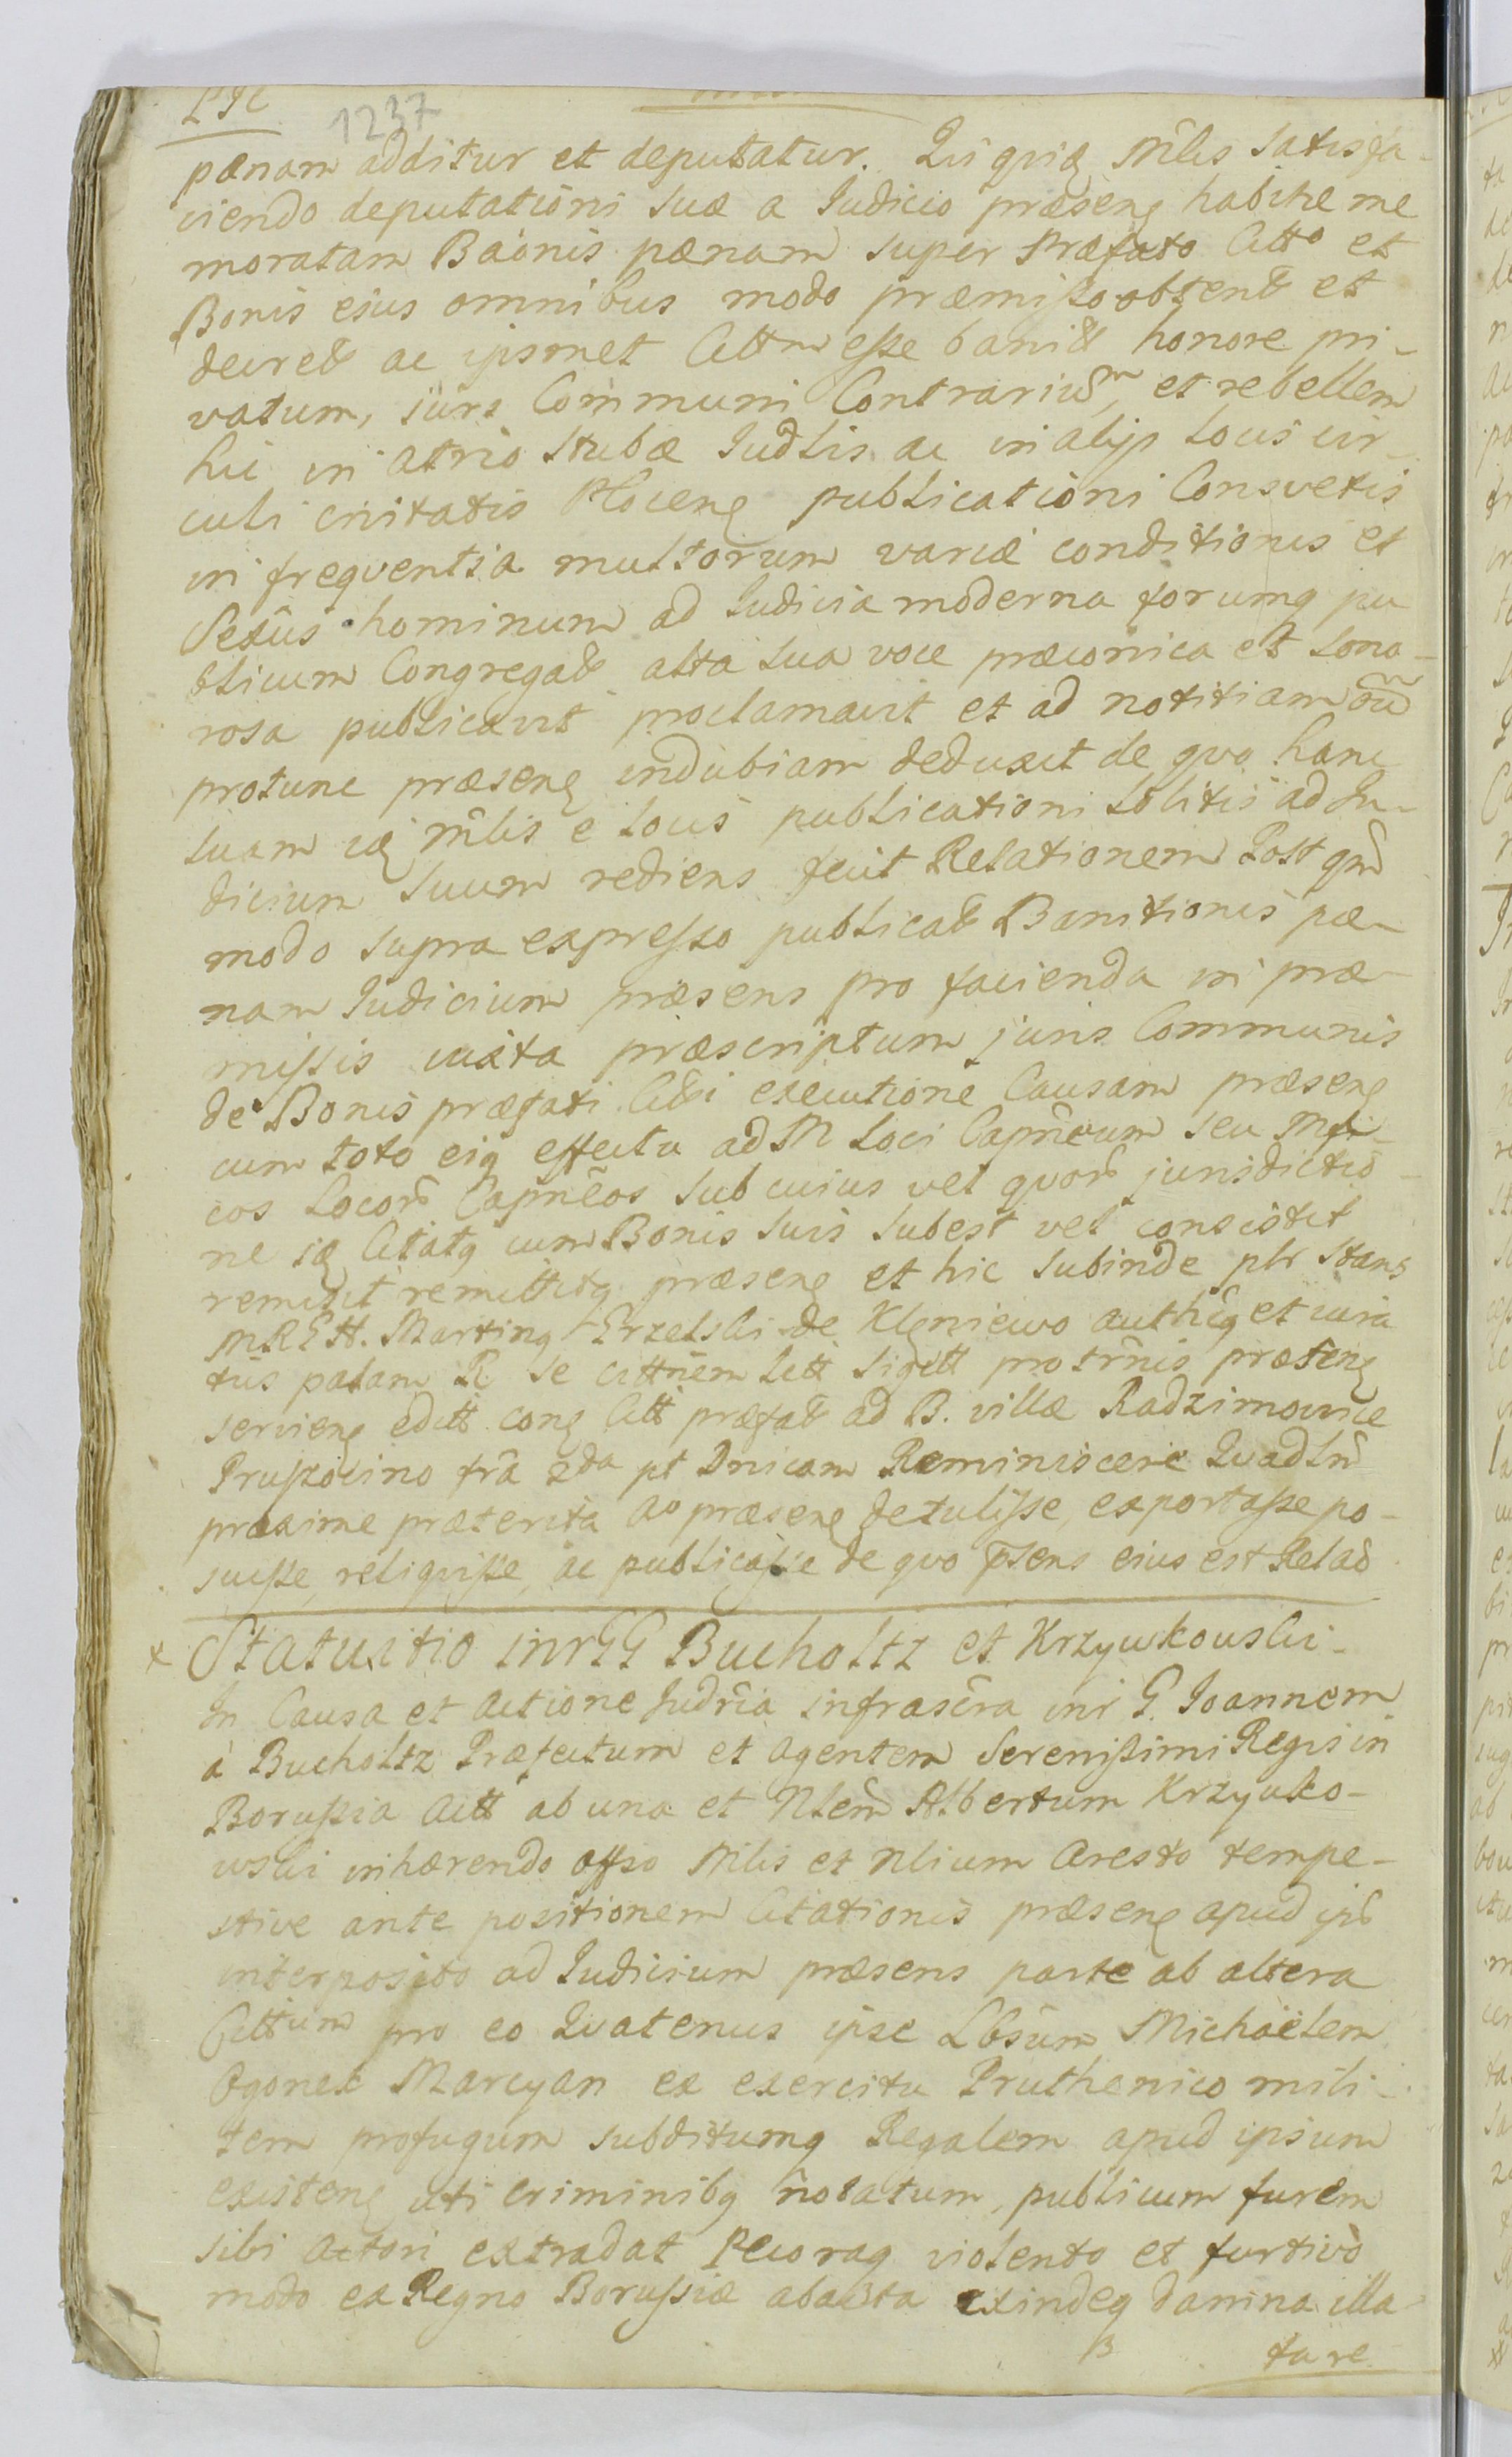 1237
pænam additur et deputatur. Qui quidē Mĩlis satisfa-
ciendo deputationi suæ a Iudicio præsenē habitæ me
moratam Bãonis pænam super Præfato Citto et
Bonis ejus omnibus modo præmisso obtent et
decret ac ipsumet Cittm esse banit honore pri-
vatum, juri Communi Contrarium, et rebellem
hic in atrio stubæ Iudlis ac in alijs locis cir-
culi civitatis Plocenē publicationi Consvetis
in freqventia multorum variæ conditionis et
Sexûs hominum ad Iudicia moderna forumq pu
blicum Congregat alta sua voce præconica et sono-
rosa publicavit proclamavit et ad notitiam oũm
protunc præsenē indubiam deduxit de qvo hanc
suam idē mĩlis e locis publicationi solitis ad Ju-
dicium suum rediens fecit Relationem Post qm̃
modo supra expresso publicat Banitionis pæ-
nam Iudicium præsens pro facienda in præ-
missis iuxta præscriptum juris Communis
de Bonis præfati Citti executione Causam præsenē
cum toto eiq effectu ad M loci Capñeum seu Mfi-
cos Locor̃ Capnẽos sub cuius vel qvor̃ jurisdictio-
ne idē Citatq cum Bonis suis subest vel consistit
remisit remittitq præsenē et hic subinde plr stans
MRGH. Martinq Grzelski de Kleniewo authēq et iura
tus palam R se cittñem litt sigill pro trm̃is præsenē
servienē edit conē Citt præfat ad B. villæ Radzimowice
Pruszocino fr̃a 2da pt Dnicam Reminiscere Quadlm̃
proxime præterita Ao præsenē detulisse, exportasse po-
suisse, reliquisse, ac publicasse de qvo p̃sens eius est Relaõ
x Statuitio inrGG Bucholtz et Krzywkowski-
In Causa et actione Judr̃ia infrascr̃a inr G. Joannem
à Bucholtz Præfectum et Agentem Serenissimi Regis in
Borussia Actt ab una et Nlem̃ Albertum Krzywko-
wski inhærendo offso Mĩlis et Nlium Aresto tempe-
stive ante positionem Citationis præsenē apud ips̃
interposito ad Iudicium præsens parte ab altera
Cittum pro eo Qvatenus ipse Lb̃sum Michaëlem
Ogonek Marcyan ex exercitu Pruthenico mili-
tem profugum subditumq Regalem apud ipsum
existenē uti criminibq notatum, publicum furem
sibi Actori extradat Pecoraq violento et furtivò
modo ex Regno Borussiæ abacta exindeq damna illa
ta re